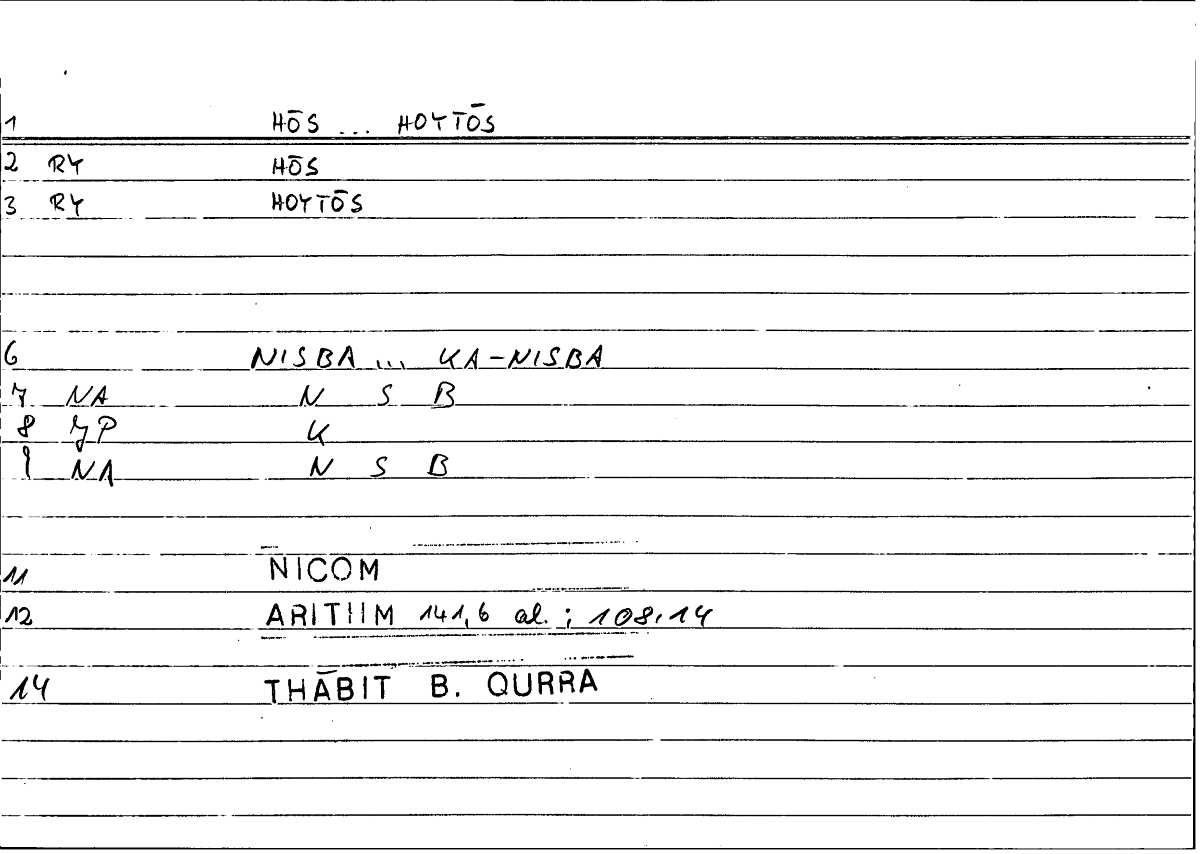 1 HŌS ... HOYTŌS
2 RY HŌS
3 RY HOYTŌS
6 NISBA ... KA-NISBA
7 NA N S B
8 JP K
9 NA N S B
11 NICOM
12 ARITHM 141,6 al. ; 108,14
14 THĀBIT B. QURRA